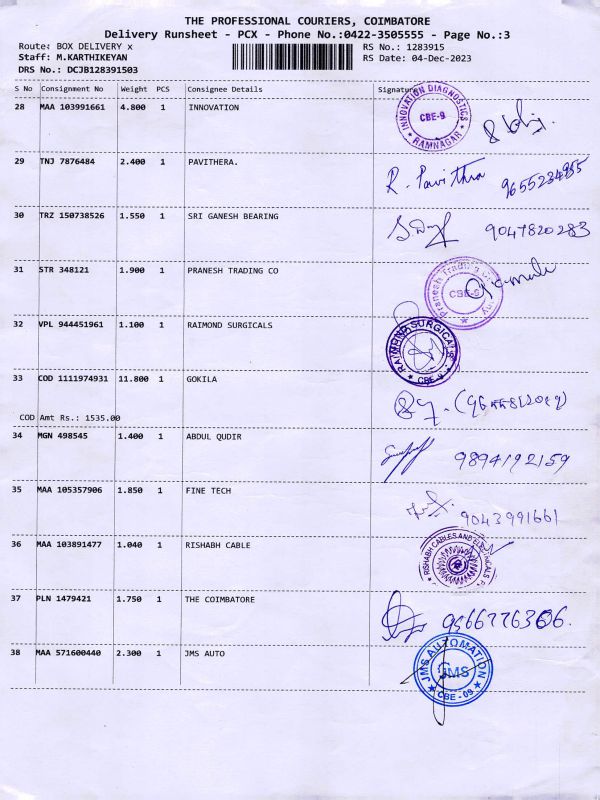 THE PROFESSIONAL COURIERS, COIMBATORE
Delivery Runsheet - PCX - Phone No.:0422-3505555 - Page No.:3
Route: BOX DELIVERY x
RS No.: 1283915
Staff: M.KARTHIKEYAN
RS Date: 04-Dec-2023
DRS No.: DCJB128391503
S No Consignment No Weight PCS Consignee Details Signature
28 MAA 103991661 4.800 1 INNOVATION
INNOVATION DIAGNOSTICS
CBE-9
RAMNAGAR
29 TNJ 7876484 2.400 1 PAVITHERA.
R. Pavithra
30 TRZ 150738526 1.550 1 SRI GANESH BEARING
9047820283
31 STR 348121 1.900 1 PRANESH TRADING CO
Pranesh Trading Company
CBE-9
32 VPL 944451961 1.100 1 RAIMOND SURGICALS
RAIMOND SURGICALS
CBE-9
33 COD 1111974931 11.800 1 GOKILA
COD Amt Rs.: 1535.00
34 MGN 498545 1.400 1 ABDUL QUDIR
9894192159
35 MAA 105357906 1.850 1 FINE TECH
9043991661
36 MAA 103891477 1.040 1 RISHABH CABLE
RISHABH CABLES AND ELECTRICALS
37 PLN 1479421 1.750 1 THE COIMBATORE
9566776306.
38 MAA 571600440 2.300 1 JMS AUTO
JMS AUTOMATION
JMS
CBE - 09